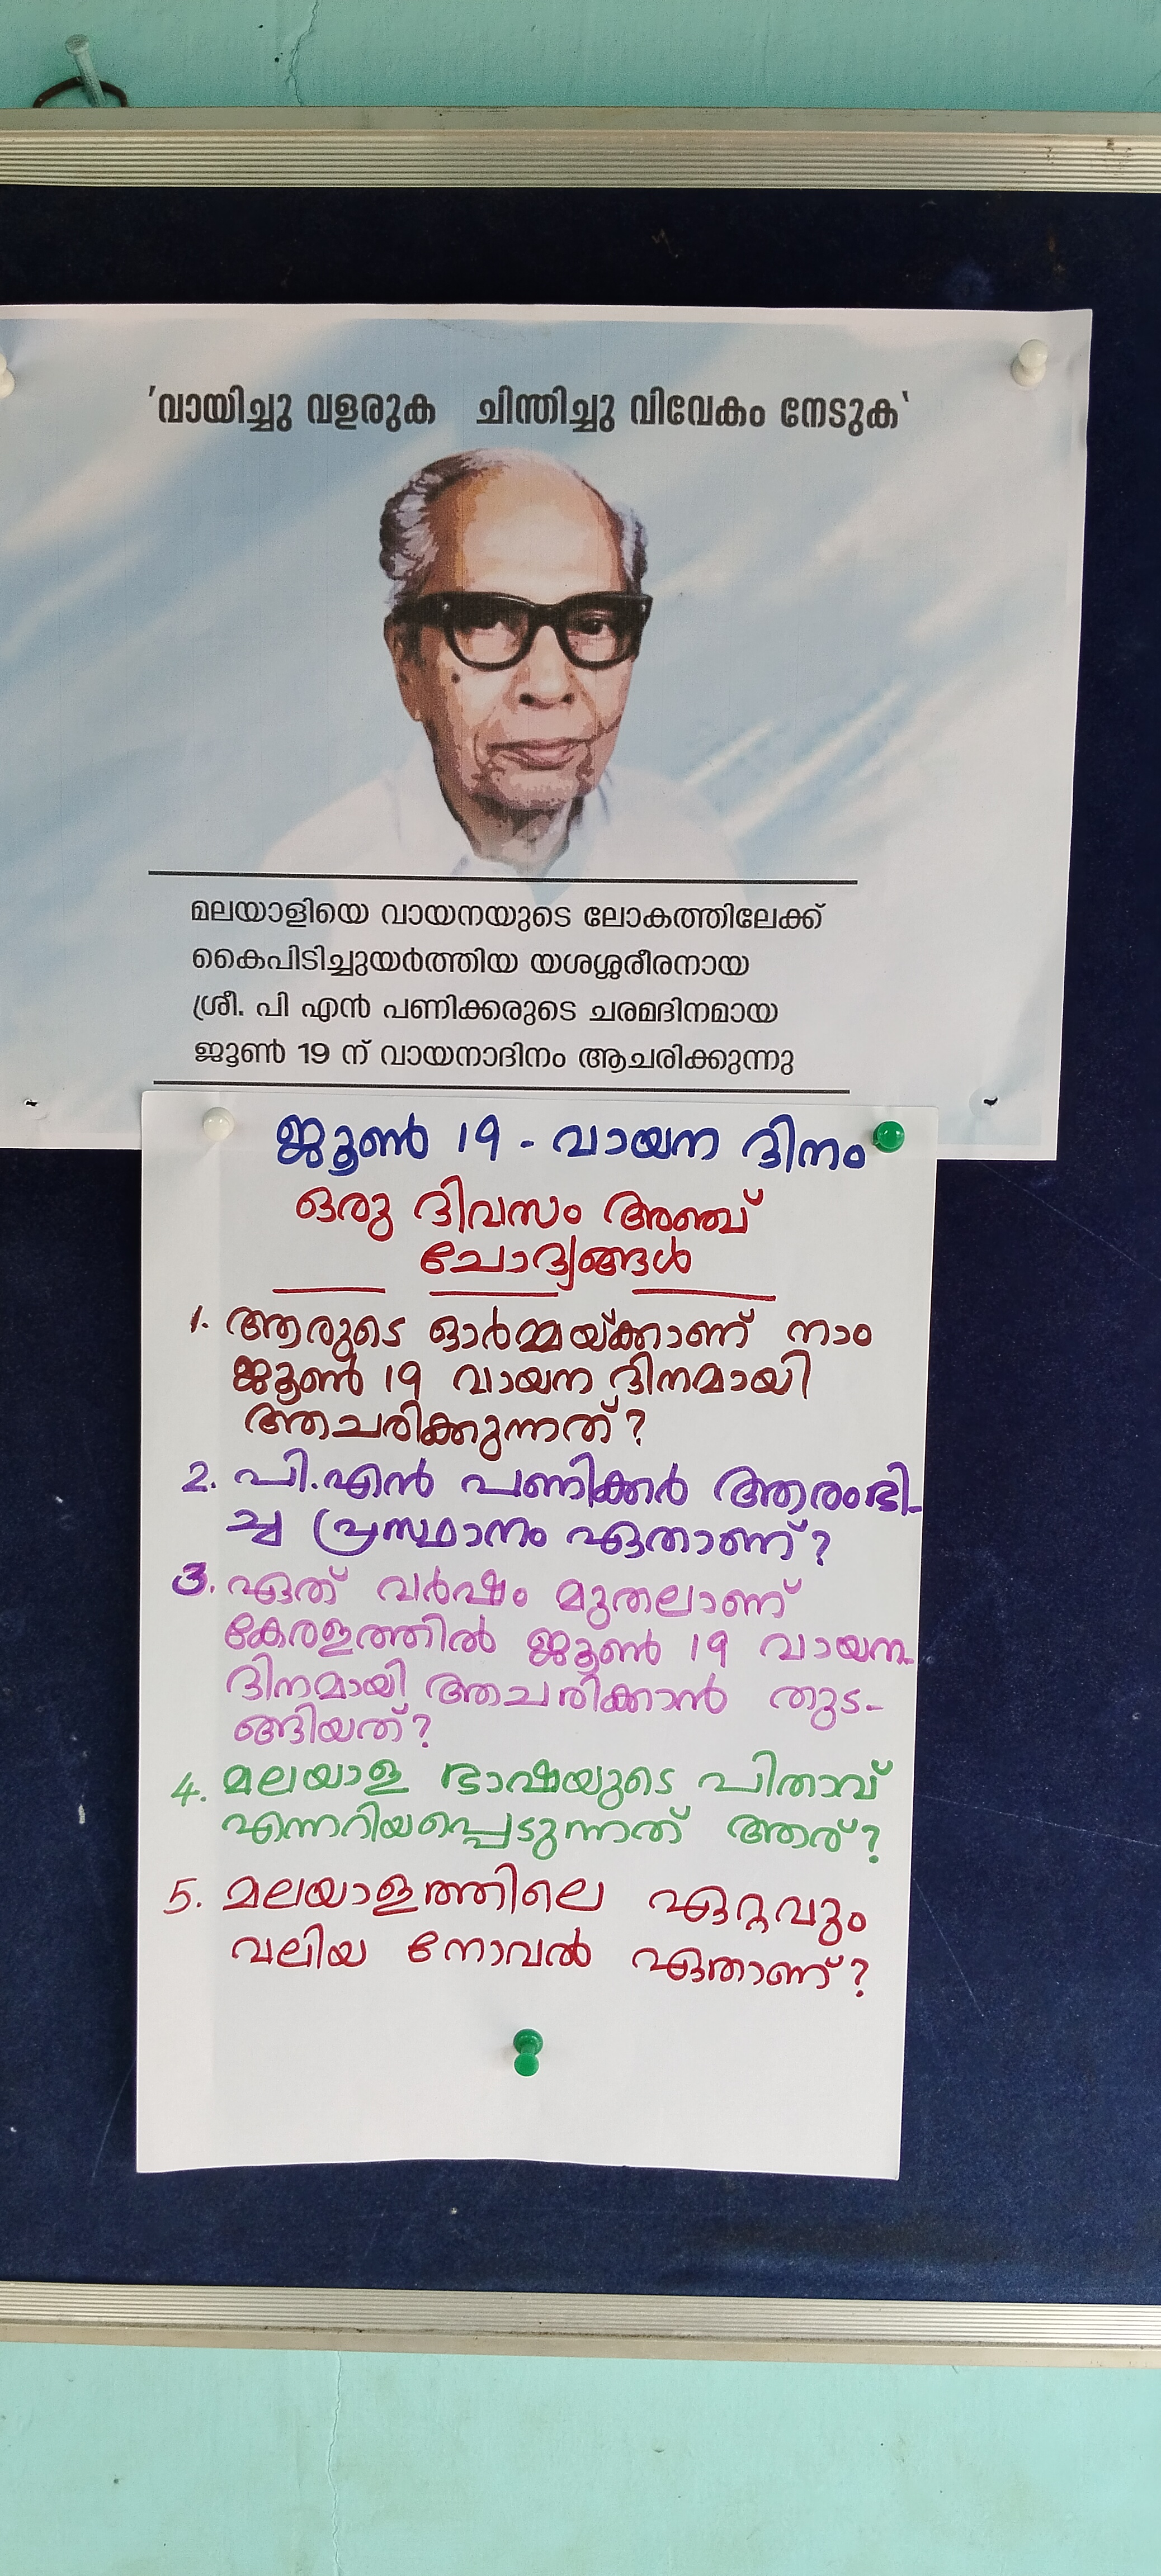 'വായിച്ചു വളരുക ചിന്തിച്ചു വിവേകം നേടുക'
മലയാളിയെ വായനയുടെ ലോകത്തിലേക്ക്
കൈപിടിച്ചുയർത്തിയ യശശ്ശരീരനായ
ശ്രീ. പി എൻ പണിക്കരുടെ ചരമദിനമായ
ജൂൺ 19 ന് വായനാദിനം ആചരിക്കുന്നു
ജൂൺ 19 - വായന ദിനം
ഒരു ദിവസം അഞ്ച്
ചോദ്യങ്ങൾ
1. ആരുടെ ഓർമ്മയ്ക്കാണ് നാം
ജൂൺ 19 വായന ദിനമായി
ആചരിക്കുന്നത്?
2. പി.എൻ പണിക്കർ ആരംഭി-
ച്ച പ്രസ്ഥാനം ഏതാണ്?
3. ഏത് വർഷം മുതലാണ്
കേരളത്തിൽ ജൂൺ 19 വായന-
ദിനമായി ആചരിക്കാൻ തുട-
ങ്ങിയത്?
4. മലയാള ഭാഷയുടെ പിതാവ്
എന്നറിയപ്പെടുന്നത് ആര്?
5. മലയാളത്തിലെ ഏറ്റവും
വലിയ നോവൽ ഏതാണ്?